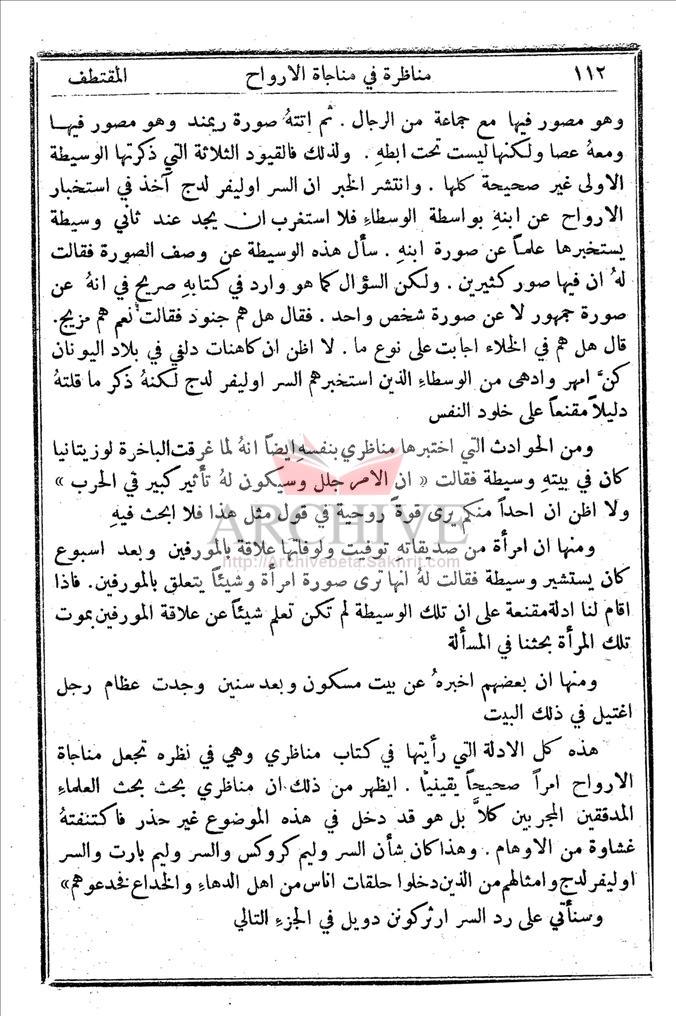 ١١٢ مناظرة في مناجاة الارواح المقتطف
وهو مصور فيها مع جماعة من الرجال . ثم اتتهُ صورة ريمند وهو مصور فيها
ومعهُ عصا ولكنها ليست تحت ابطهِ . ولذلك فالقيود الثلاثة التي ذكرتها الوسيطة
الاولى غير صحيحة كلها . وانتشر الخبر ان السر اوليفر لدج آخذ في استخبار
الارواح عن ابنهِ بواسطة الوسطاءِ فلا استغرب ان يجد عند ثاني وسيطة
يستخبرها علماً عن صورة ابنهِ . سأل هذه الوسيطة عن وصف الصورة فقالت
لهُ ان فيها صور كثيرين . ولكن السؤال كما هو وارد في كتابهِ صريح في انهُ عن
صورة جمهور لا عن صورة شخص واحد . فقال هل هم جنود فقالت نعم هم مزيج.
قال هل هم في الخلاء اجابت على نوع ما . لا اظن ان كاهنات دلفي في بلاد اليونان
كنَّ امهر وادهى من الوسطاءِ الذين استخبرهم السر اوليفر لدج لكنهُ ذكر ما قلتهُ
دليلاً مقنعاً على خلود النفس
ومن الحوادث التي اختبرها مناظري بنفسهِ ايضاً انهُ لما غرقت الباخرة لوزيتانيا
كان في بيتهِ وسيطة فقالت « ان الامر جلل وسيكون لهُ تأثير كبير في الحرب »
ولا اظن ان احداً منكم يرى قوةً روحية في قول مثل هذا فلا ابحث فيهِ
ARCHIVE
ومنها ان امرأة من صديقاته توفيت ولوفاتها علاقة بالمورفين وبعد اسبوع
http://Archivebeta.Sakhrit.com
كان يستشير وسيطة فقالت لهُ انها ترى صورة امرأة وشيئاً يتعلق بالمورفين. فاذا
اقام لنا ادلة مقنعة على ان تلك الوسيطة لم تكن تعلم شيئاً عن علاقة المورفين بموت
تلك المرأة بحثنا في المسألة
ومنها ان بعضهم اخبرهُ عن بيت مسكون وبعد سنين وجدت عظام رجل
اغتيل في ذلك البيت
هذه كل الادلة التي رأيتها في كتاب مناظري وهي في نظره تجعل مناجاة
الارواح امراً صحيحاً يقينياً . ايظهر من ذلك ان مناظري بحث بحث العلماءِ
المدققين المجربين كلاَّ بل هو قد دخل في هذه الموضوع غير حذر فاكتنفتهُ
غشاوة من الاوهام . وهذا كان شأن السر وليم كروكس والسر وليم بارت والسر
اوليفر لدج وامثالهم من الذين دخلوا حلقات اناس من اهل الدهاءِ والخداع فخدعوهم»
وسنأتي على رد السر ارثر كونن دويل في الجزءِ التالي